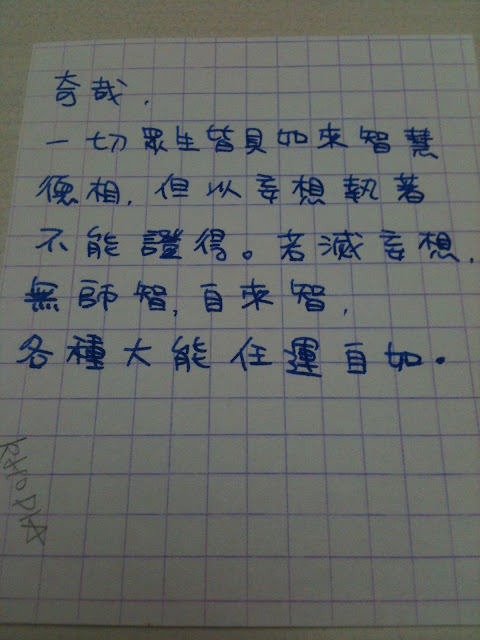 奇哉，
一切眾生皆具如來智慧
德相，但以妄想執著
不能證得。若滅妄想，
無師智，自來智，
各種大能任運自如。